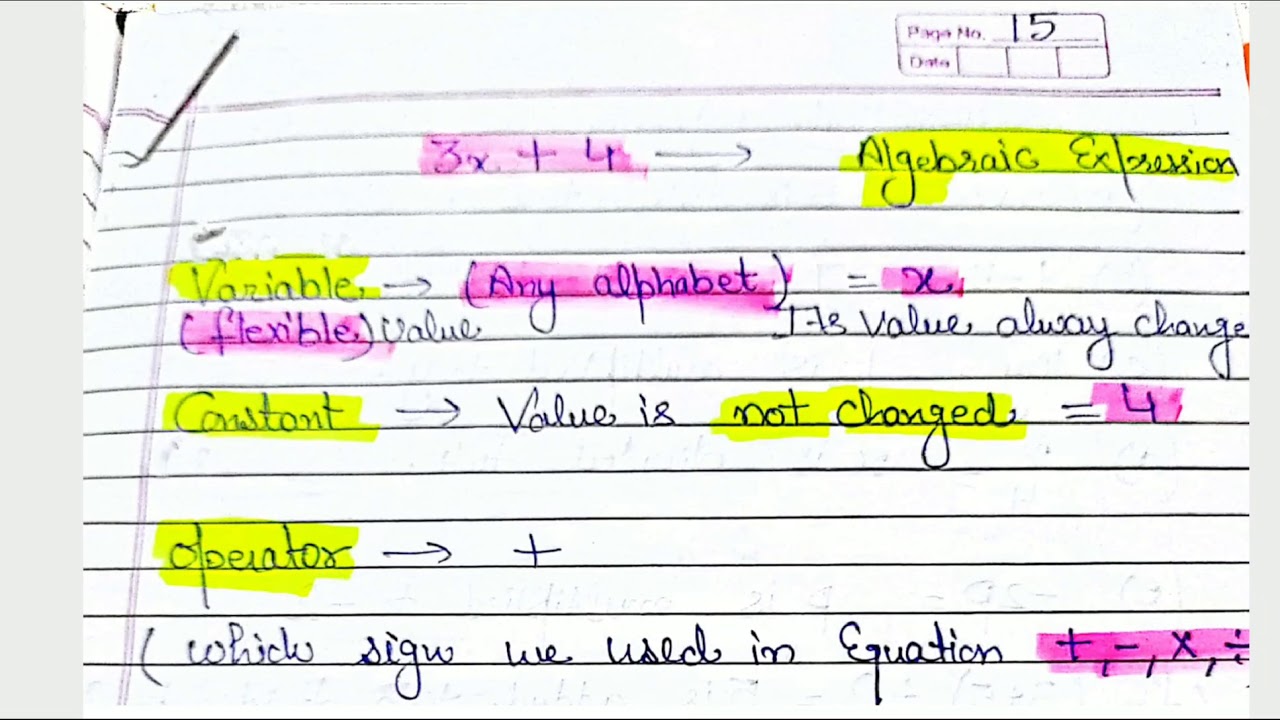 Page No. 15
Date
3x + 4 → Algebraic Expression
Variable → (Any alphabet) = x
(flexible) value Its value alway change
Constant → Value is not changed = 4
operator → +
( which sign we used in Equation +, -, x, ÷